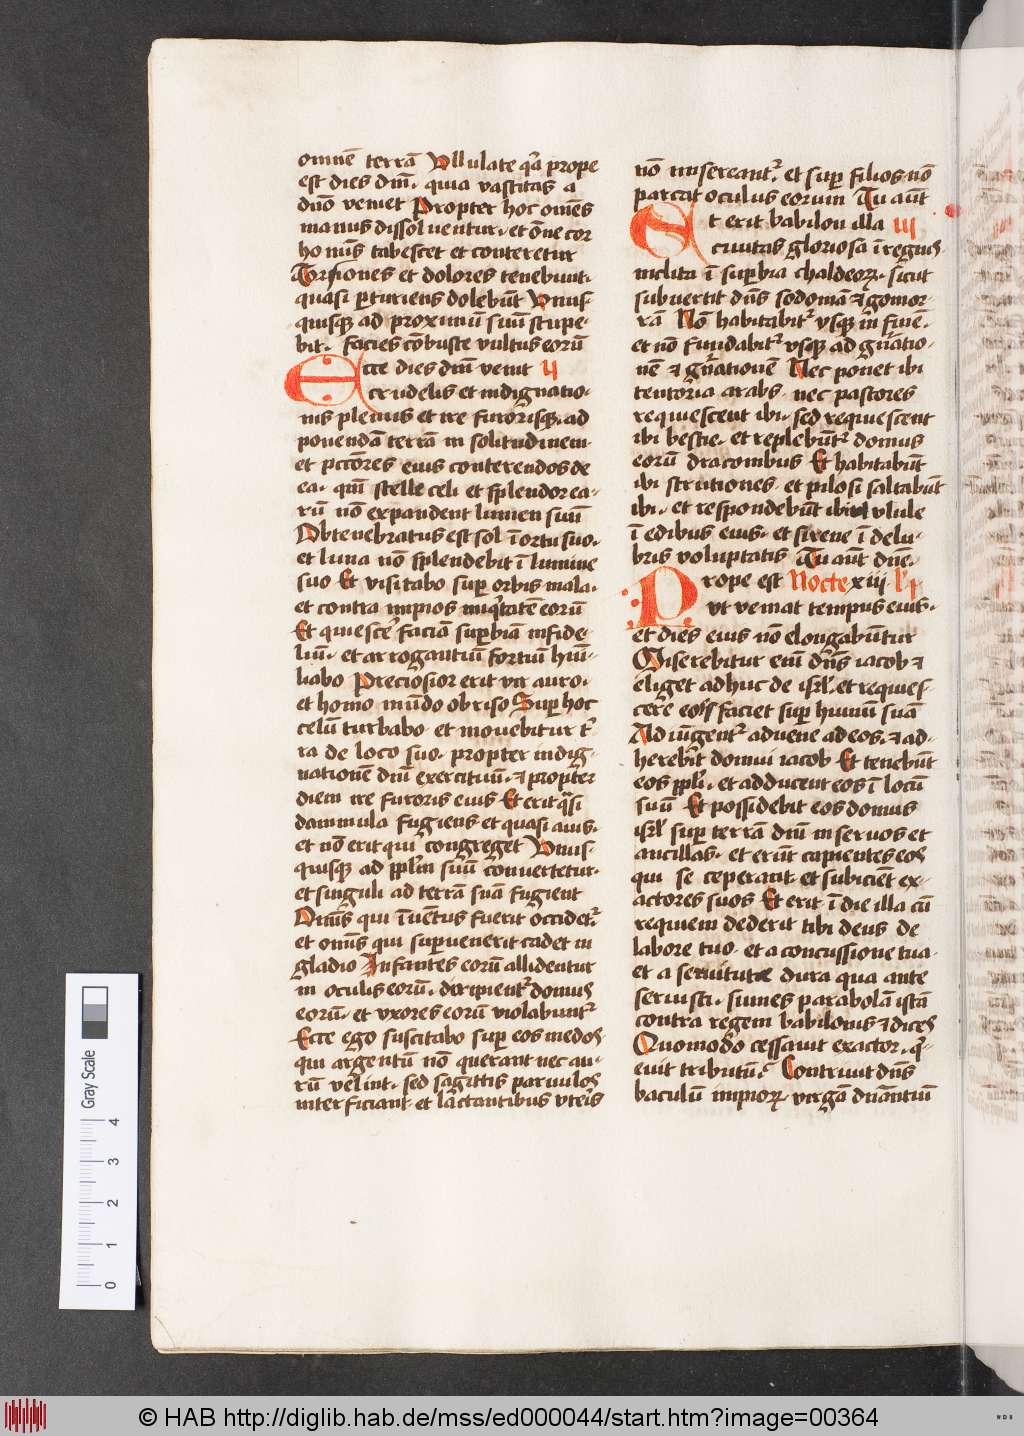 omnē terrā Vllulate qa prope
est dies dm̄. quia vastitas a
dn̄o veniet Propter hoc om̄es
manus dissoluentur. et om̄e cor
homīs tabescet et conteretur
Torsiones et dolores tenebunt.
quasi parturiens dolebūt Vnus
quisqꝫ ad proximū suū stupe-
bit. facies cōbuste vultus eorū
Ecce dies dn̄i venit ij
crudelis et indignatio-
nis plenus et ire furorisqꝫ. ad
ponendā terrā in solitudinem
et pcc̄ores eius conterendos de
ea. qm̄ stelle celi et splendor ea-
rū nō expandent lumen suū
Obtenebratus est sol ī ortu suo.
et luna nō splendebit ī lumine
suo Et visitabo super orbis mala.
et contra impios iniqͥtatē eorū
Et quiesce faciā superbiā infide-
liū. et arrogantiū fortiū hūi-
liabo Preciosior erit vir auro.
et homo mūdo obriso Super hoc
celū turbabo. et mouebitur t̄-
ra de loco suo. propter indig-
nationē dn̄i exercituū. et propter
diem ire furoris eius Et erit qͣsi
dammula fugiens et quasi auis.
et nō erit qui congreget Vnus
quisqꝫ ad pplm̄ suū conuertetur.
et singuli ad terrā suā fugient
Om̄is qui īuētus fuerit occidet᷑.
et om̄is qui superuenerit cadet in
gladio Infantes eorū allidentur
in oculis eorū. diripient᷑ domus
eorū. et vxores eorū violabunt᷑
Ecce ego suscitabo super eos medos
qui argentū nō querant nec au-
rū velint. sed sagittis paruulos
interficiant et lactantibus vteris
nō misereant᷑. et super filios nō
parcat oculus eorum Tu aūt
Et erit babilon illa iij
ciuitas gloriosa ī regnis
inclita ī superbia chaldeoꝝ. sicut
subuertit dn̄s sodomā et gomor-
rā Nō habitabit᷑ vsqꝫ in finē.
et nō fundabit᷑ vsqꝫ ad gn̄atio-
nē et gn̄ationē Nec ponet ibi
tentoria arabs. nec pastores
requiescent ibi. sed requiescent
ibi bestie. et replebūt᷑ domus
eorū draconibus Et habitabūt
ibi strutiones. et pilosi saltabūt
ibi. et respondebūt ibi vlule
ī edibus eius. et sirene ī delu-
bris voluptatis Tu aūt dn̄e
Prope est Nocte xiij l' p
vt veniat tempus eius.
et dies eius nō elongabūtur
Miserebitur enī dn̄s iacob et
eliget adhuc de isrl'. et requies-
cere eos faciet super humū suā
Adiūgent᷑ aduene ad eos. et ad-
herebūt domui iacob Et tenebūt
eos ppl'i. et adducent eos ī locū
suū Et possidebit eos domus
isrl' super terrā dn̄i in seruos et
ancillas. et erūt capientes eos
qui se ceperant. et subiciēt ex-
actores suos Et erit ī die illa cū
requiem dederit tibi deus de
labore tuo. et a concussione tua
et a seruitute dura qua ante
seruisti. sumes parabolā istā
contra regem babilonis et dices
Quomodo cessauit exactor. qͥ-
euit tributū? Contriuit dn̄s
baculū impioꝝ. virgā dn̄antiū
Gray Scale
0 1 2 3 4
© HAB http://diglib.hab.de/mss/ed000044/start.htm?image=00364